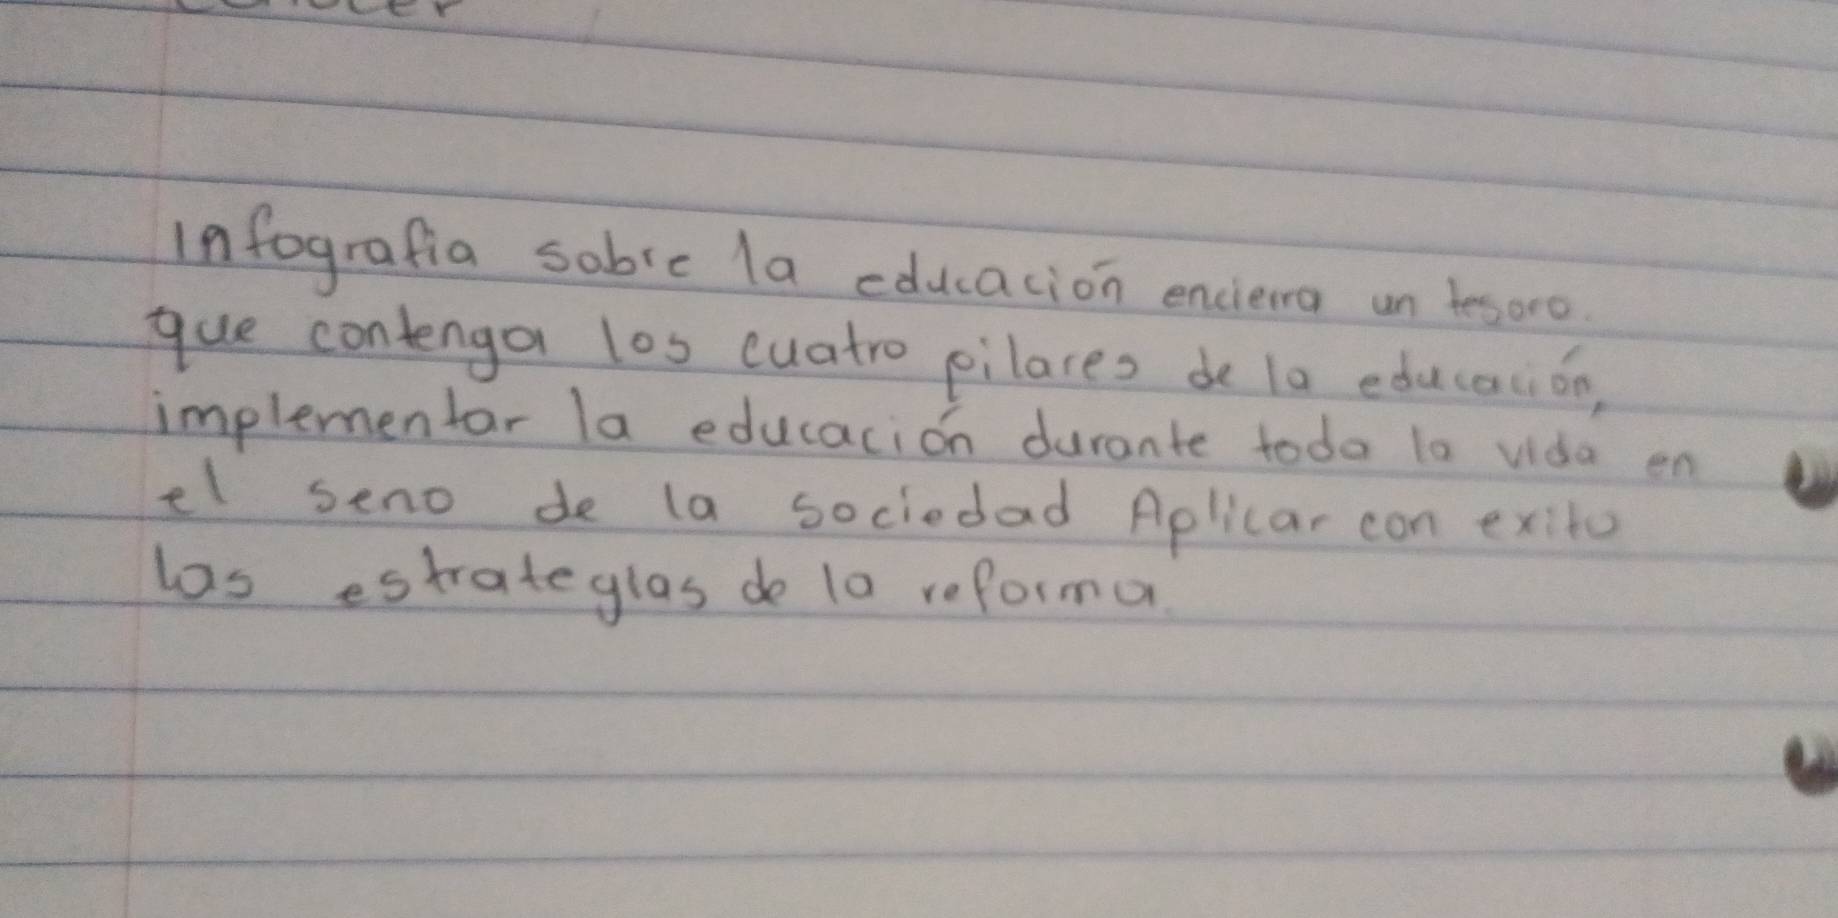 Infografia sobre la educación encierra un tesoro.
que contenga los cuatro pilares de la educación,
implementar la educación durante toda la vida en
el seno de la sociedad Aplicar con exito
las estrategias de la reforma.